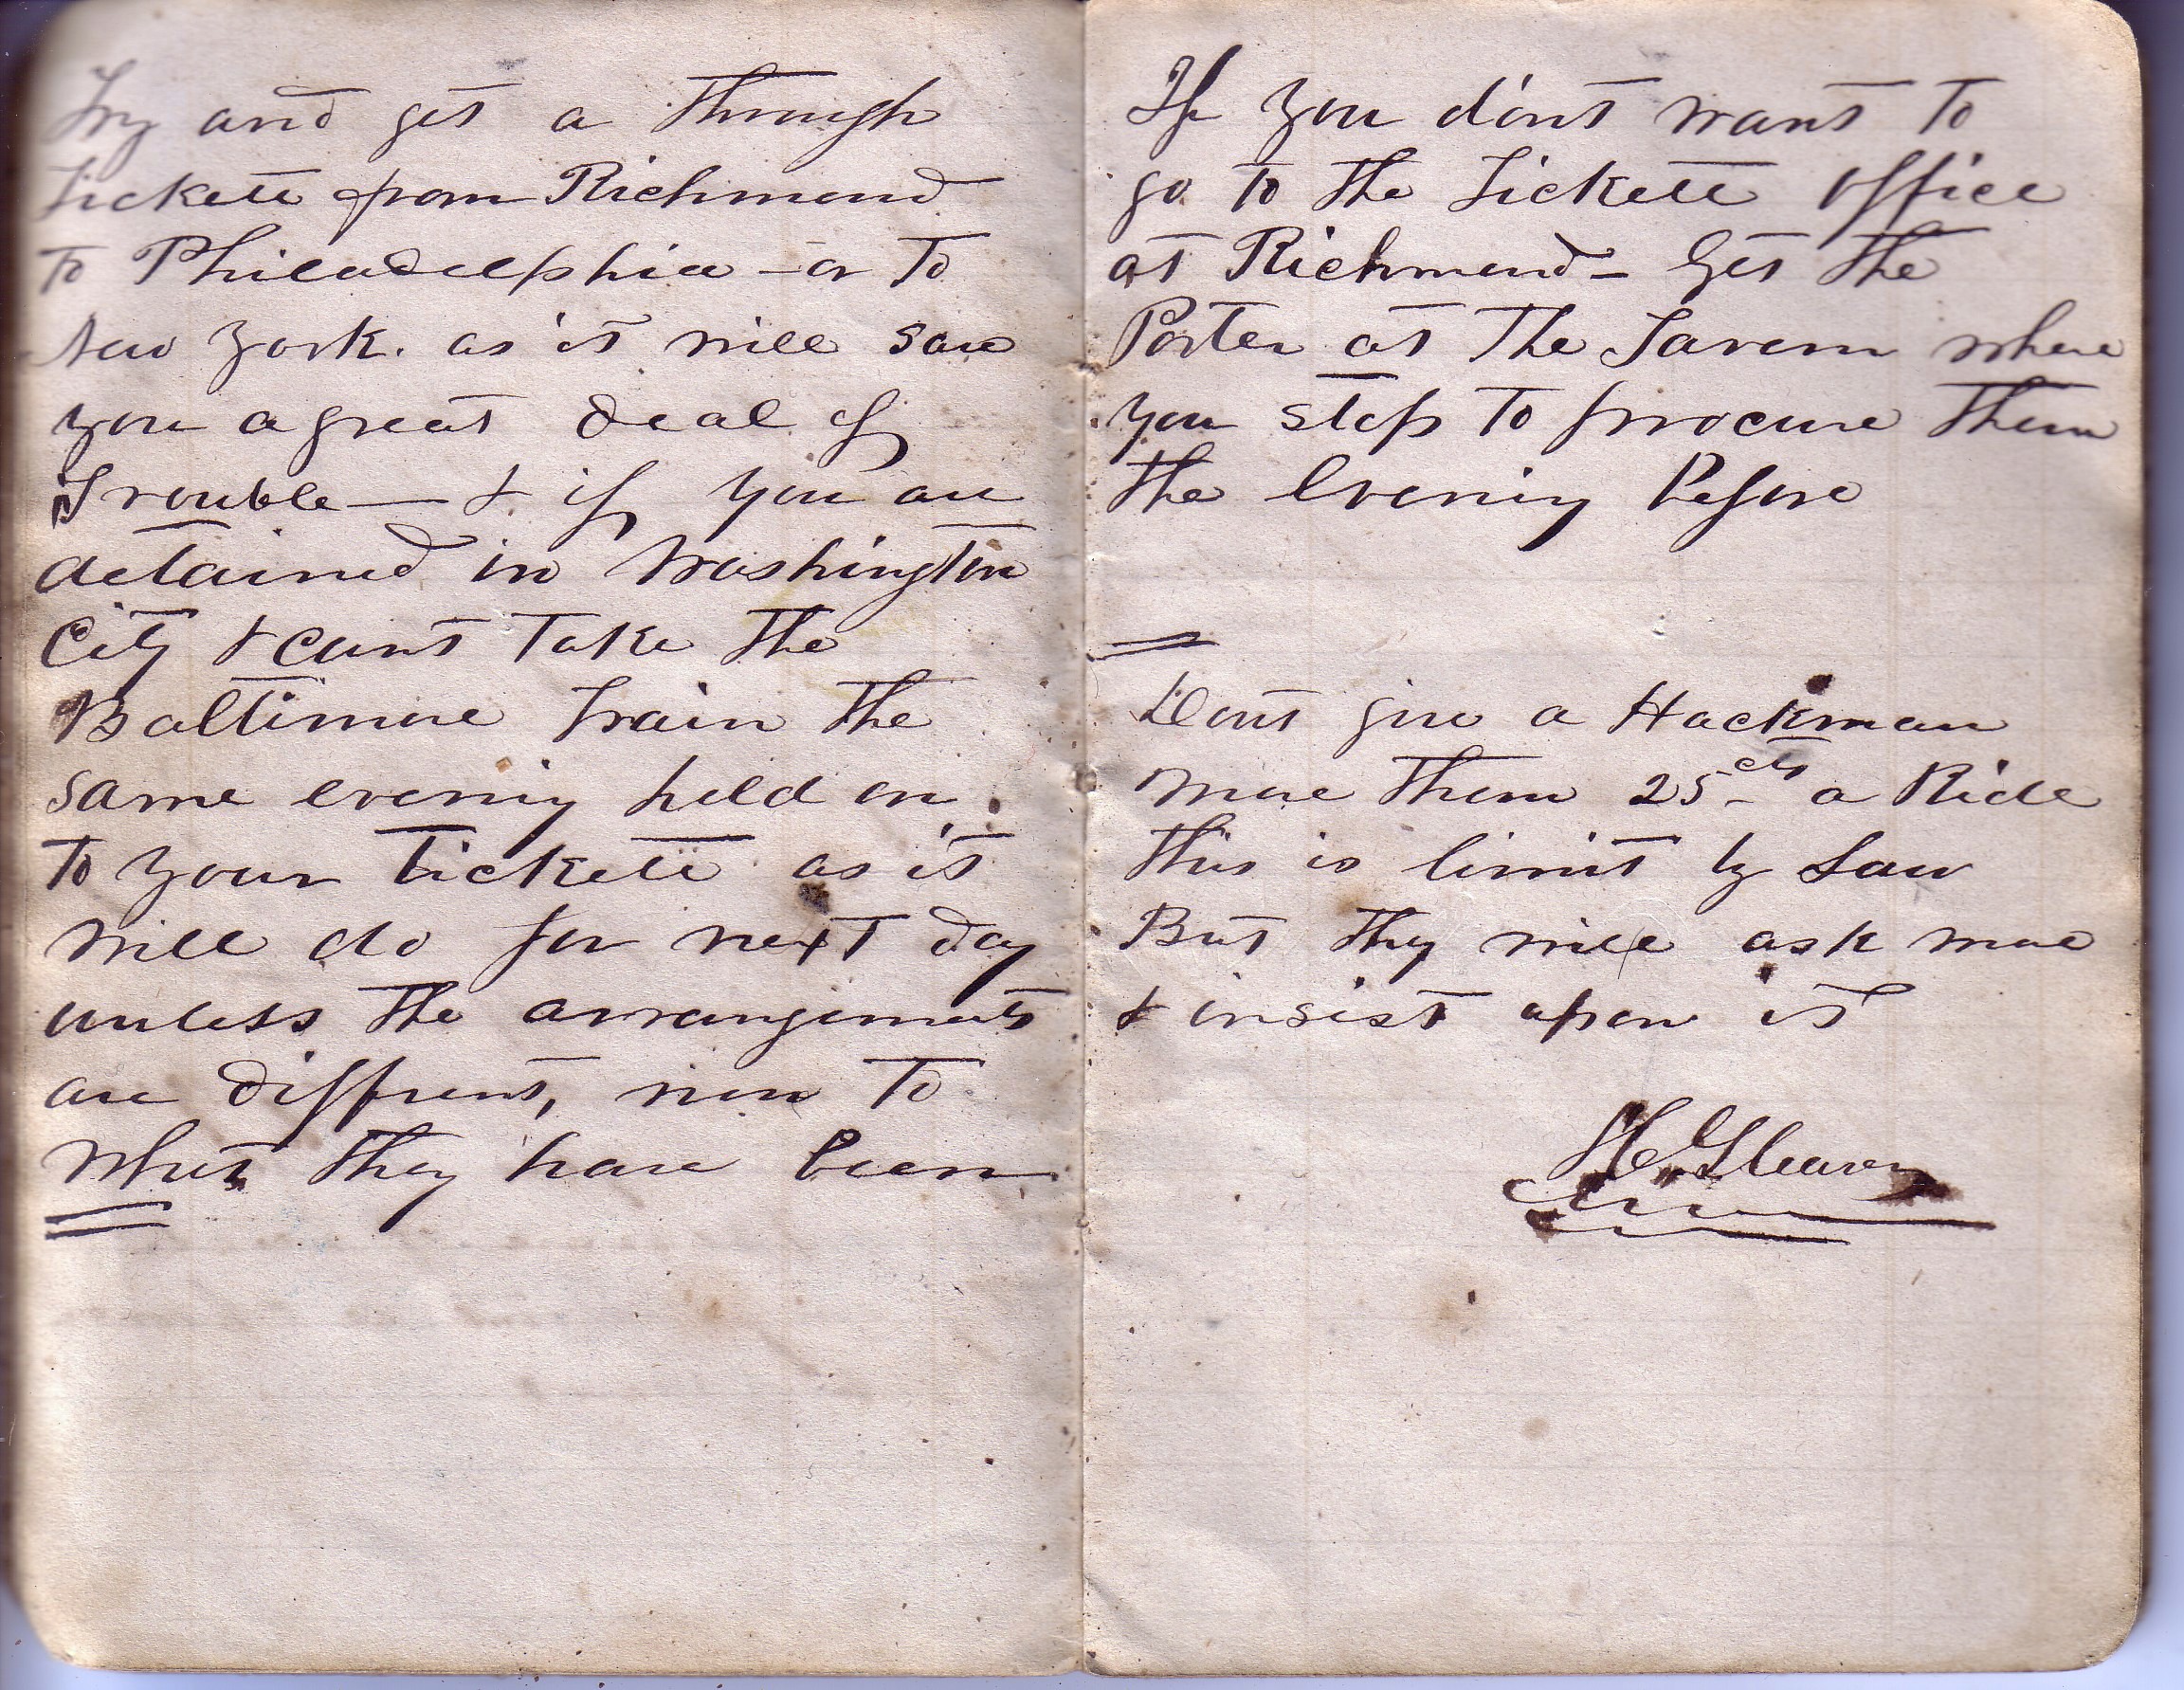 Try and get a through
Tickett from Richmond
to Philadelphia - or To
New York. as it will save
you a great deal of
Trouble — & if you are
detained in Washington
City & cant Take The
Baltimore Train The
same evening hold on
To your Tickett as it
will do for next day
unless The arrangements
are diffrent, now To
what They have been
If you dont want To
go To The Tickett office
at Richmond - Get The
Porter at The Tavern where
you stop To procure Them
The Evening Before
Dont give a Hackman
more Then 25 cts a Ride
This is limit by Law
But They will ask more
& insist upon it